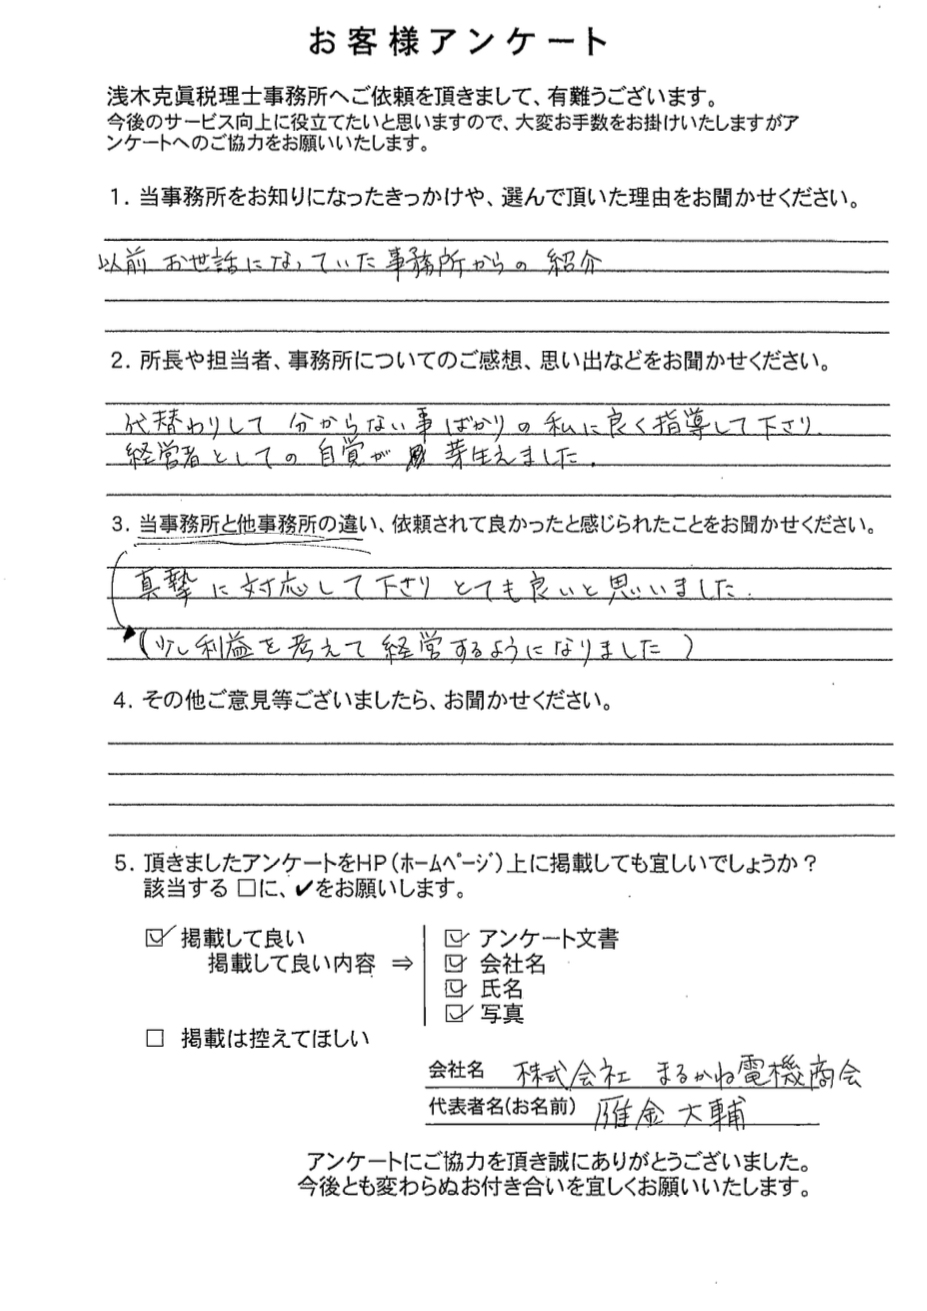 お客様アンケート
浅木克眞税理士事務所へご依頼を頂きまして、有難うございます。
今後のサービス向上に役立てたいと思いますので、大変お手数をお掛けいたしますがア
ンケートへのご協力をお願いいたします。
1. 当事務所をお知りになったきっかけや、選んで頂いた理由をお聞かせください。
以前お世話になっていた事務所からの紹介
2. 所長や担当者、事務所についてのご感想、思い出などをお聞かせください。
代替わりして分からない事ばかりの私に良く指導して下さり、
経営者としての自覚が芽生えました。
3. 当事務所と他事務所の違い、依頼されて良かったと感じられたことをお聞かせください。
真摯に対応して下さりとても良いと思いました。
(少し利益を考えて経営するようになりました)
4. その他ご意見等ございましたら、お聞かせください。
5. 頂きましたアンケートをHP(ホームページ)上に掲載しても宜しいでしょうか?
該当する □に、✔をお願いします。
☑ 掲載して良い
掲載して良い内容 ⇒
☑ アンケート文書
☑ 会社名
☑ 氏名
☑ 写真
□ 掲載は控えてほしい
会社名 株式会社 まるかね電機商会
代表者名(お名前) 雁金 大輔
アンケートにご協力を頂き誠にありがとうございました。
今後とも変わらぬお付き合いを宜しくお願いいたします。